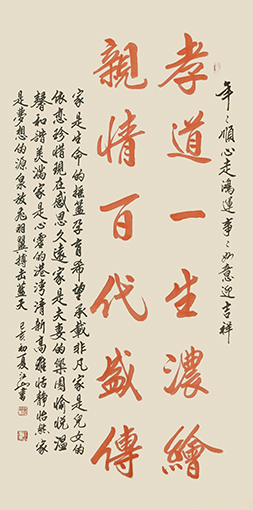 年〻順心走鴻運事〻如意迎吉祥
孝道一生濃繪
親情百代盛傳
家是生命的摇籃孕育希望承載非凡家是兒女的
依戀珍惜現在感恩久遠家是夫妻的樂園愉悦溫
馨和諧美滿家是心靈的港湾清新高雅恬静怡然家
是夢想的源泉放飛羽翼搏击蓝天
己亥初夏江山書